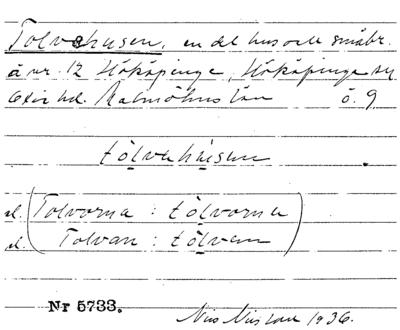 Tolvehusen, en del hus och småbr.
å nr. 12 Hököpinge, Hököpinge sn
Oxie hd. Malmöhus län ö. 9
tòlvehúsen .
el. (Tolvorna : tòlvorna
el. Tolvan : tòlvan)
Nr 5733. Nils Nilsson 1936.